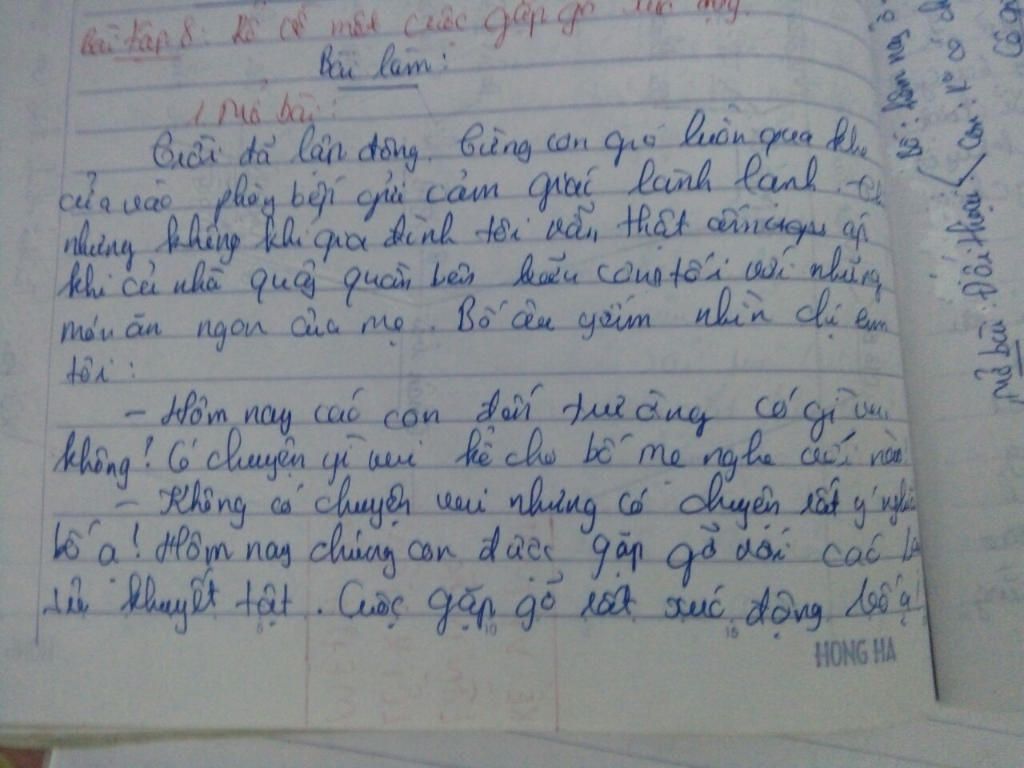 Bài tập 8: Kể về một cuộc gặp gỡ xúc động.
Bài làm:
1, Mở bài:
Trời đã lập đông. Từng cơn gió luồn qua khe
cửa vào phòng bếp gửi cảm giác lành lạnh
nhưng không khí gia đình tôi vẫn thật ấm áp
khi cả nhà quây quần bên bữa cơm tối với những
món ăn ngon của mẹ. Bố âu yếm nhìn chị em
tôi:
- Hôm nay các con đến trường có gì vui
không! Có chuyện gì vui kể cho bố mẹ nghe với nào
- Không có chuyện vui nhưng có chuyện rất ý nghĩa
bố ạ! Hôm nay chúng con được gặp gỡ với các
khuyết tật. Cuộc gặp gỡ rất xúc động bố ạ!
5 10 15
HONG HA
Bố: Hôm nay ở
Mở bài: Đối thoại Con: Ko có ch